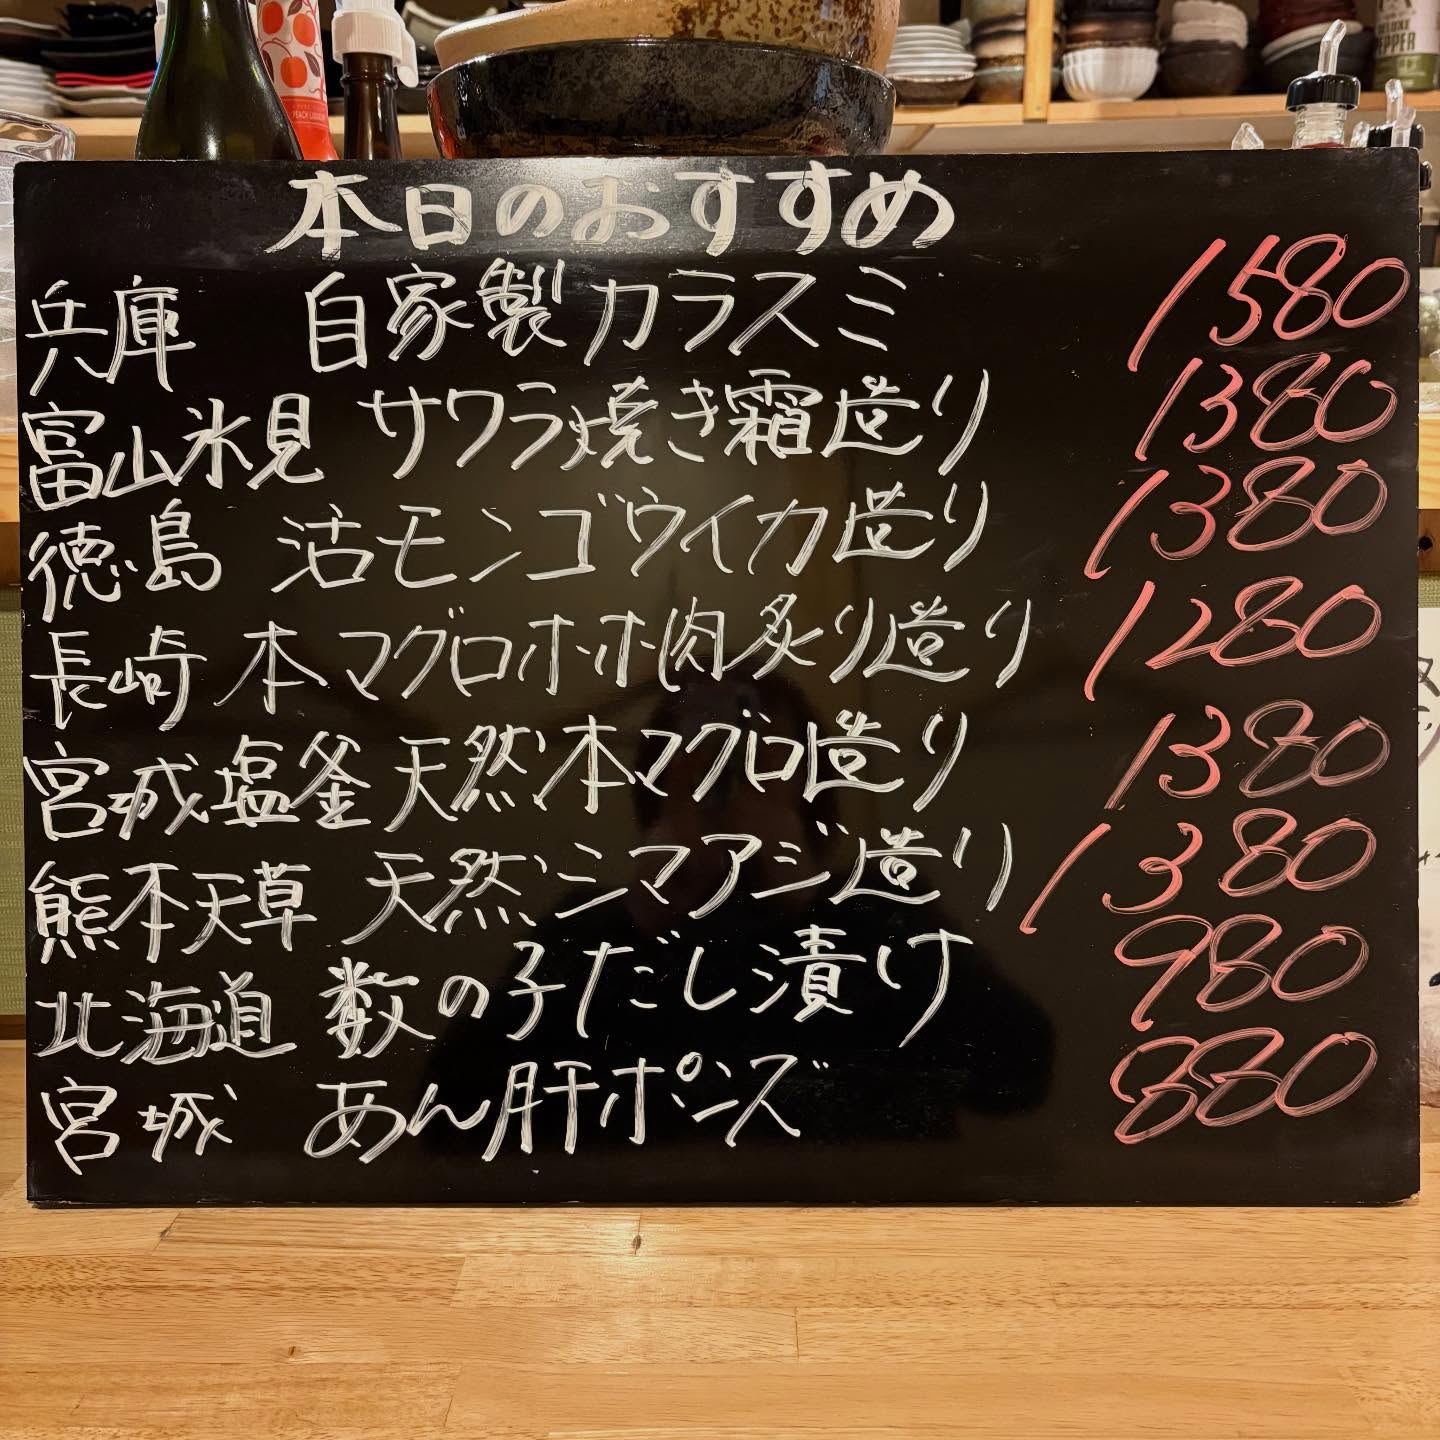 本日のおすすめ
兵庫 自家製カラスミ 1580
富山氷見 サワラ焼き霜造り 1380
徳島 活モンゴウイカ造り 1380
長崎 本マグロホホ肉炙り造り 1280
宮城塩釜 天然本マグロ造り 1380
熊本天草 天然シマアジ造り 1380
北海道 数の子だし漬け 980
宮城 あん肝ポンズ 880
PEACH LIQUEUR
PEPPER